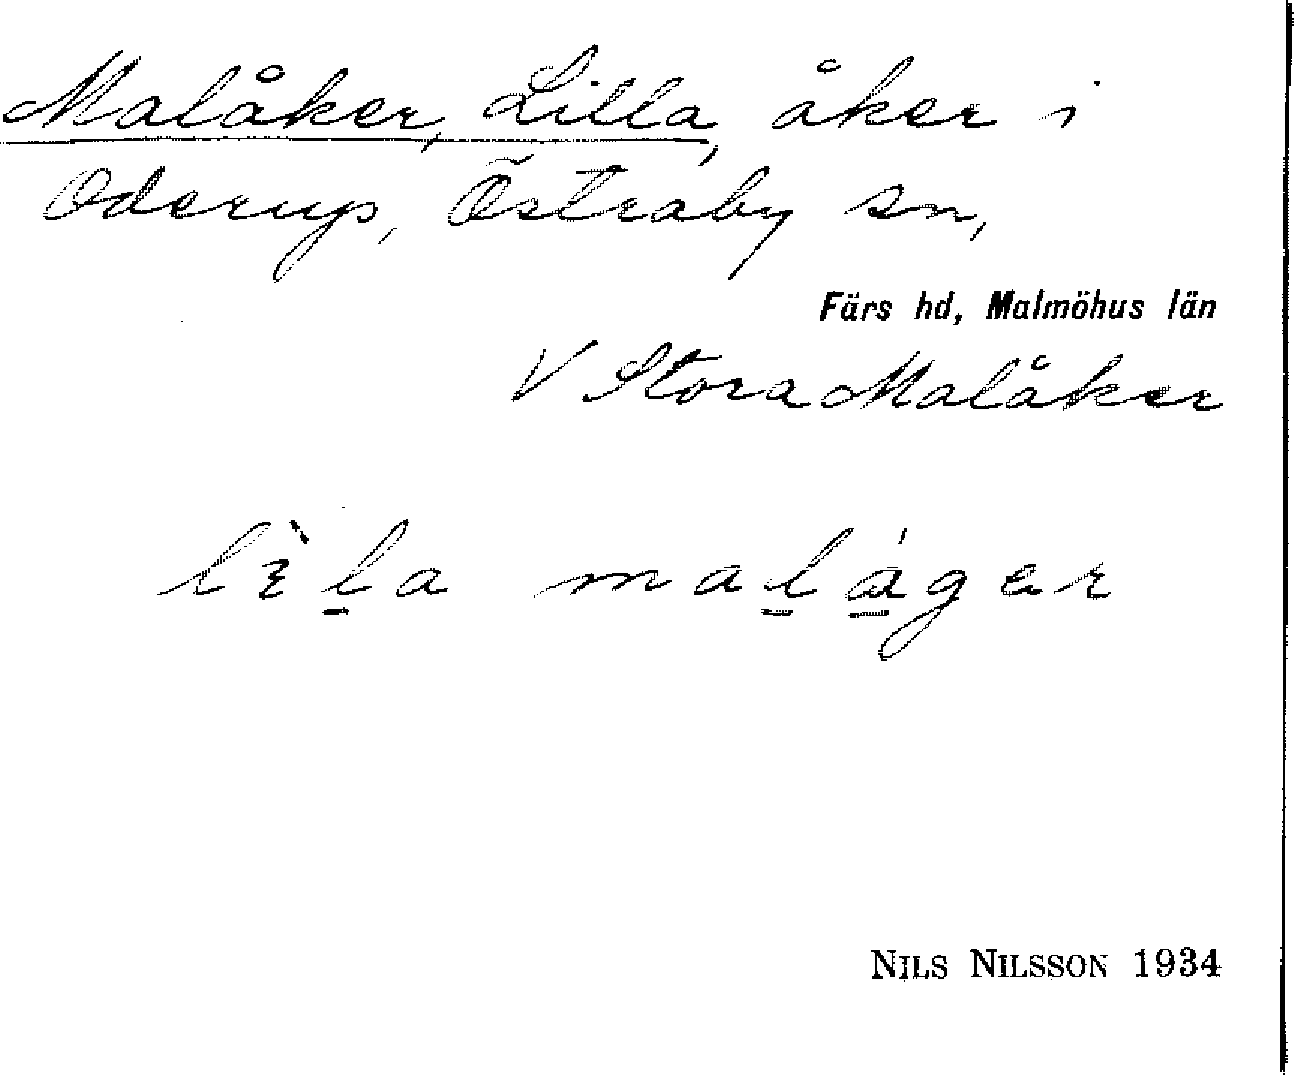 Malåker, Lilla, åker i
Oderup, Östraby sn,
Färs hd, Malmöhus län
V Stora Malåker
maláger
NILS NILSSON 1934